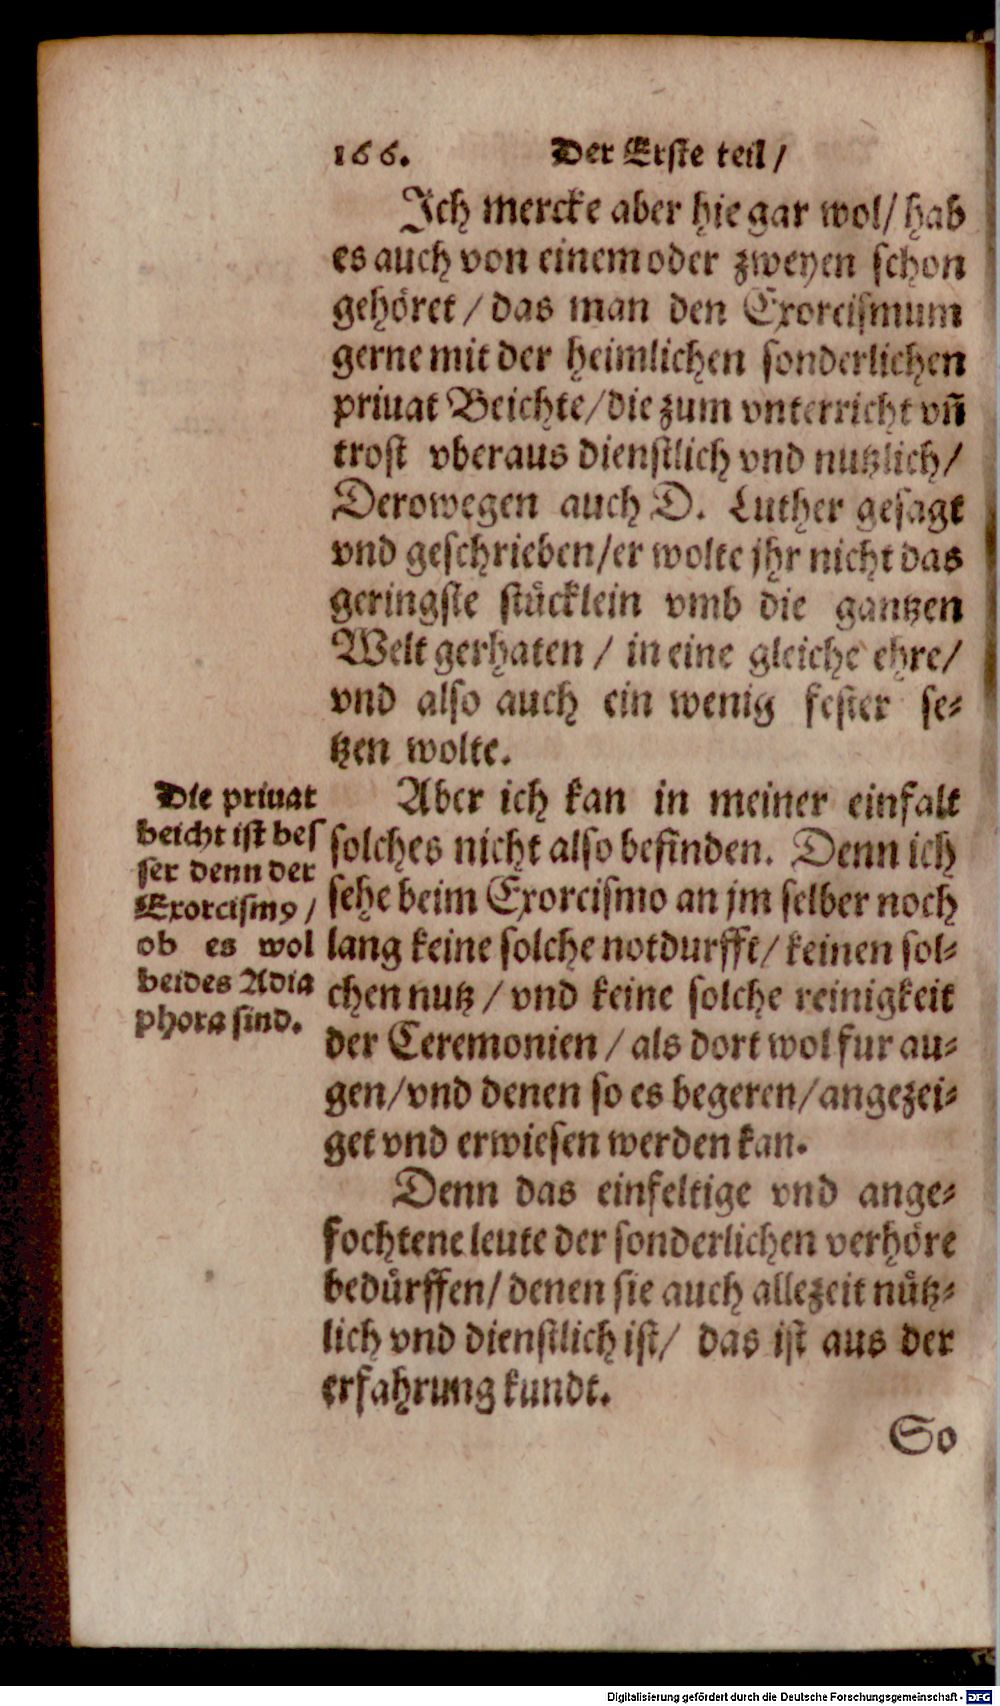 166. Der Erste teil /
Ich mercke aber hie gar wol / hab
es auch von einem oder zweyen schon
gehöret / das man den Exorcismum
gerne mit der heimlichen sonderlichen
priuat Beichte / die zum vnterricht vñ
trost vberaus dienstlich vnd nutzlich /
Derowegen auch D. Luther gesagt
vnd geschrieben / er wolte jhr nicht das
geringste stücklein vmb die gantzen
Welt gerhaten / in eine gleiche ehre /
vnd also auch ein wenig fester se-
tzen wolte.
Die priuat
beicht ist bes
ser denn der
Exorcismꝰ /
ob es wol
beides Adia
phora sind.
Aber ich kan in meiner einfalt
solches nicht also befinden. Denn ich
sehe beim Exorcismo an jm selber noch
lang keine solche notdurfft / keinen sol-
chen nutz / vnd keine solche reinigkeit
der Ceremonien / als dort wol fur au-
gen / vnd denen so es begeren / angezei-
get vnd erwiesen werden kan.
Denn das einfeltige vnd ange-
fochtene leute der sonderlichen verhöre
bedürffen / denen sie auch allezeit nütz-
lich vnd dienstlich ist / das ist aus der
erfahrung kundt.
So
Digitalisierung gefördert durch die Deutsche Forschungsgemeinschaft - DFG